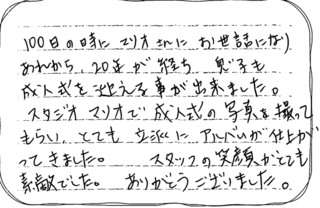 100日の時にマリオさんにお世話になり
あれから、20年が経ち、息子も
成人式を迎える事が出来ました。
スタジオマリオで成人式の写真を撮って
もらい、とても立派にアルバムが仕上が
ってきました。 スタッフの笑顔がとても
素敵でした。 ありがとうございました。